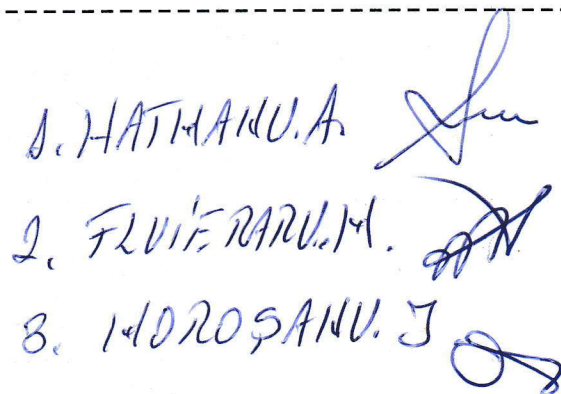 1. HATMANU. A.
2. FLUIERARU. M.
3. MOROȘANU. I